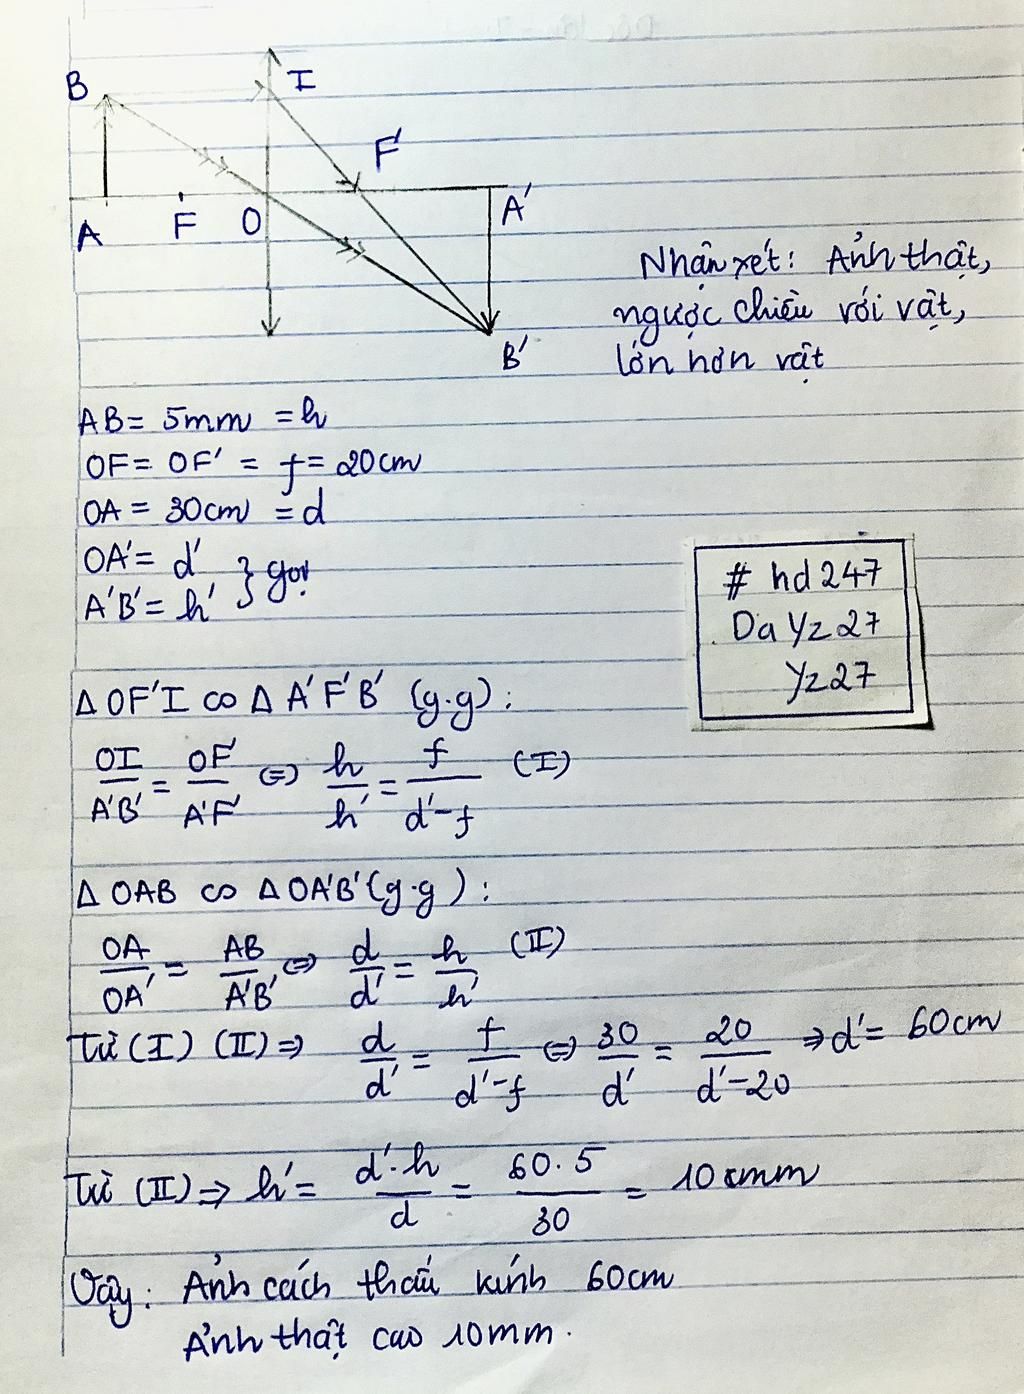 B I
F'
A F O A'
B'
Nhận xét: Ảnh thật,
ngược chiều với vật,
lớn hơn vật
AB = 5mm = h
OF = OF' = f = 20cm
OA = 30cm = d
OA' = d'
A'B' = h' } gọi
# hd247
Da Yz27
Yz27
Δ OF'I ∽ Δ A'F'B' (g.g):
OI/A'B' = OF'/A'F' ⇔ h/h' = f/d'-f (I)
Δ OAB ∽ Δ OA'B' (g.g):
OA/OA' = AB/A'B' ⇔ d/d' = h/h' (II)
Từ (I) (II) ⇒ d/d' = f/d'-f ⇔ 30/d' = 20/d'-20 ⇒ d' = 60cm
Từ (II) ⇒ h' = d'.h/d = 60.5/30 = 10 mm
Vậy: Ảnh cách thấu kính 60cm
Ảnh thật cao 10mm.